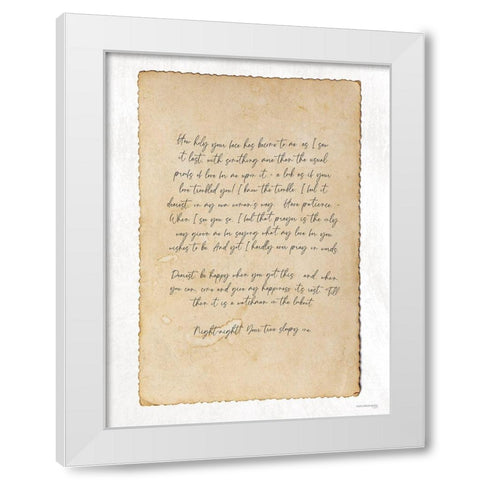 How holy your face has become to me as I saw
it last, with something more than the usual
proofs of love for me upon it - a look as if your
love troubled you! I know the trouble. I feel it,
dearest, in my own woman's way. Have patience. -
When I see you so, I feel that prayer is the only
way given me for saying what my love for you
wishes to be. And yet I hardly ever pray in words.
Dearest, be happy when you get this: and, when
you can, come and give my happiness its rest. Till
then it is a watchman on the lookout.
Night-night! Your true sleepy one.